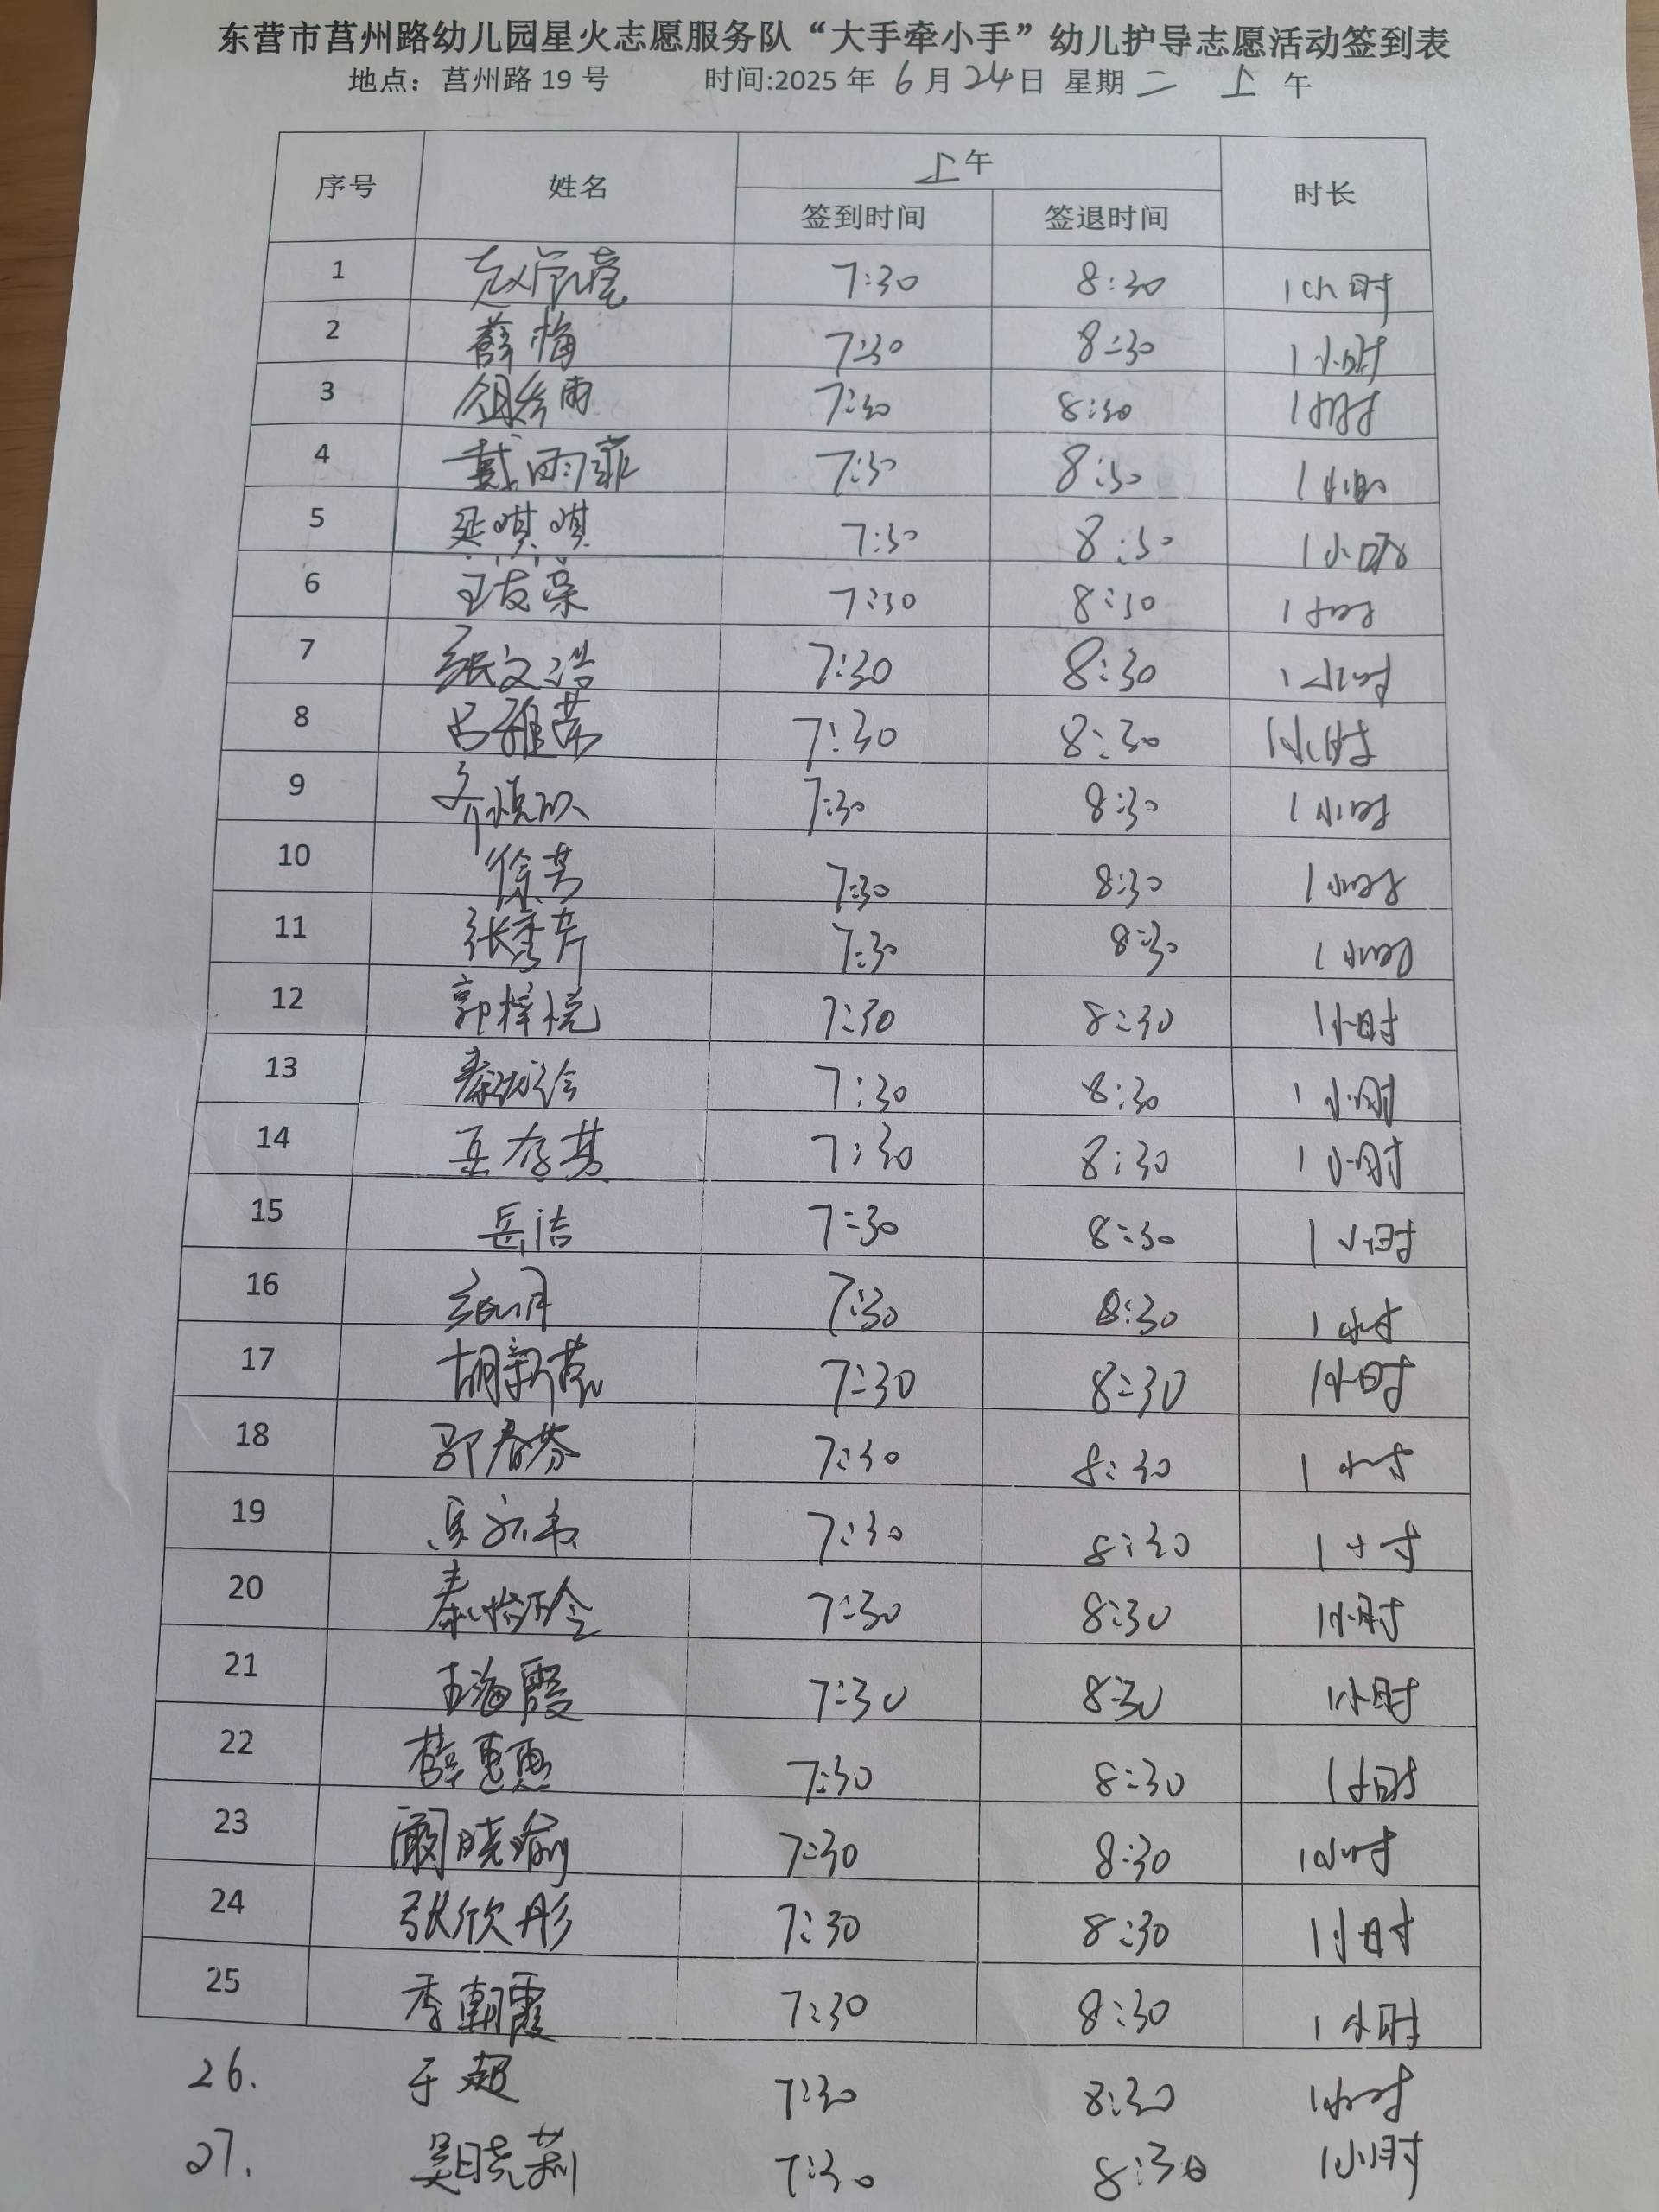 东营市莒州路幼儿园星火志愿服务队“大手牵小手”幼儿护导志愿活动签到表
地点：莒州路 19 号 时间:2025 年 6 月 24 日 星期 二 上 午
序号 姓名 上午 时长
签到时间 签退时间
1 7:30 8:30 1小时
2 薛梅 7:30 8:30 1小时
3 7:30 8:30 1小时
4 戴雨菲 7:30 8:30 1小时
5 延琪琪 7:30 8:30 1小时
6 王友荣 7:30 8:30 1小时
7 张文浩 7:30 8:30 1小时
8 吕雅茜 7:30 8:30 1小时
9 7:30 8:30 1小时
10 徐芳 7:30 8:30 1小时
11 张秀芹 7:30 8:30 1小时
12 郭梓悦 7:30 8:30 1小时
13 7:30 8:30 1小时
14 7:30 8:30 1小时
15 岳洁 7:30 8:30 1小时
16 7:30 8:30 1小时
17 胡新苗 7:30 8:30 1小时
18 邵春芬 7:30 8:30 1小时
19 7:30 8:30 1小时
20 秦怡玲 7:30 8:30 1小时
21 王海霞 7:30 8:30 1小时
22 薛惠惠 7:30 8:30 1小时
23 阚晓瑜 7:30 8:30 1小时
24 张欣彤 7:30 8:30 1小时
25 季朝霞 7:30 8:30 1小时
26. 于超 7:30 8:30 1小时
27. 吴晓莉 7:30 8:30 1小时